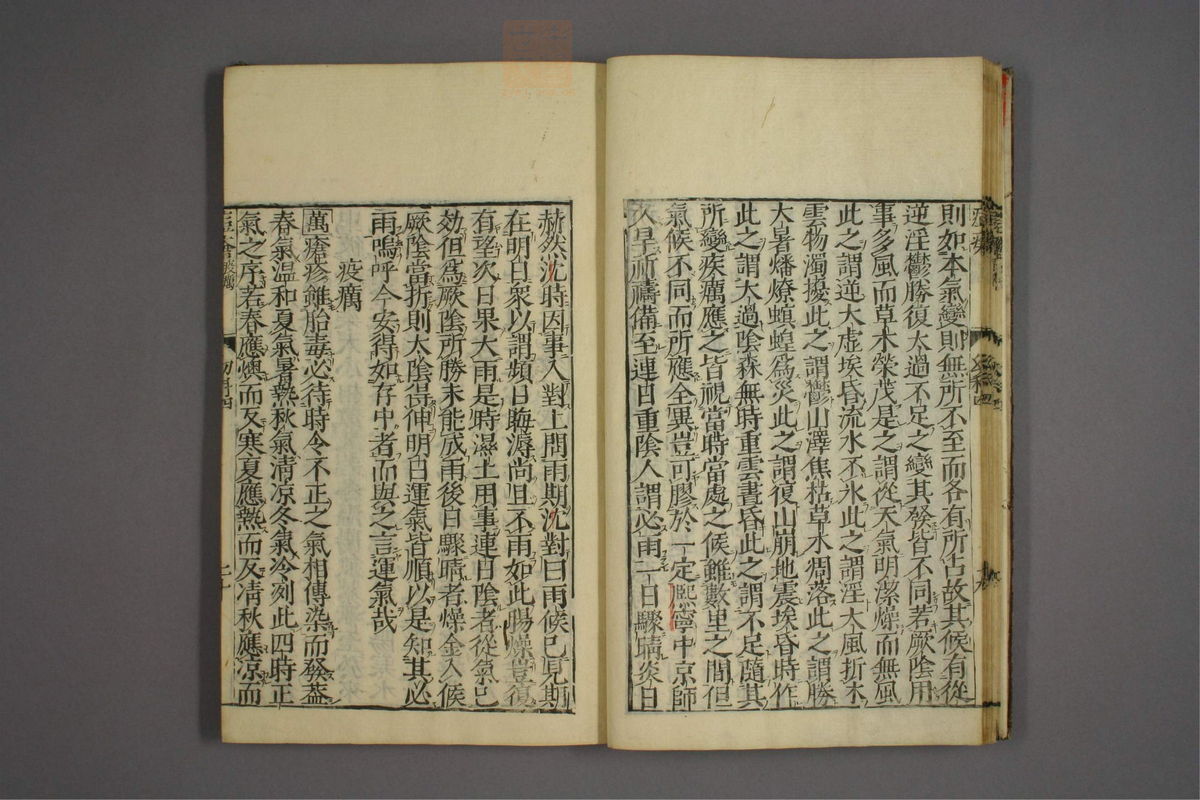 則如本氣變則無所不至而各有所占故其候有從
逆淫鬱勝復太過不足之變其發皆不同若厥陰用
事多風而草木榮茂是之謂從天氣明潔燥而無風
此之謂逆大虚埃昏流水不氷此之謂淫大風折木
雲物濁擾此之謂鬱山澤焦枯草木凋落此之謂勝
大暑燔燎螟蝗爲災此之謂復山崩地震埃昏時作
此之謂大過陰森無時重雲晝昏此之謂不足隨其
所變疾癘應之皆視當時當處之候雖數里之間但
氣候不同而所應全異豈可膠於一定熈寧中京師
久旱祈禱備至連日重陰人謂必雨一日驟晴炎日
赫然沈時因事入對上問雨期沈對曰雨候已見期
在明日衆以謂頻日晦溽尚且不雨如此暘燥豈復
有望次日果大雨是時濕土用事連日陰者從氣已
効但爲厥陰所勝未能成雨後日驟晴者燥金入候
厥陰當折則太陰得伸明日運氣皆順以是知其必
雨嗚呼今安得如存中者而與之言運氣哉
疫癘
萬瘡疹雖胎毒必待時令不正之氣相傳染而發葢
春氣温和夏氣暑熱秋氣清凉冬氣冷冽此四時正
氣之序若春應燠而又寒夏應熱而反凊秋應凉而